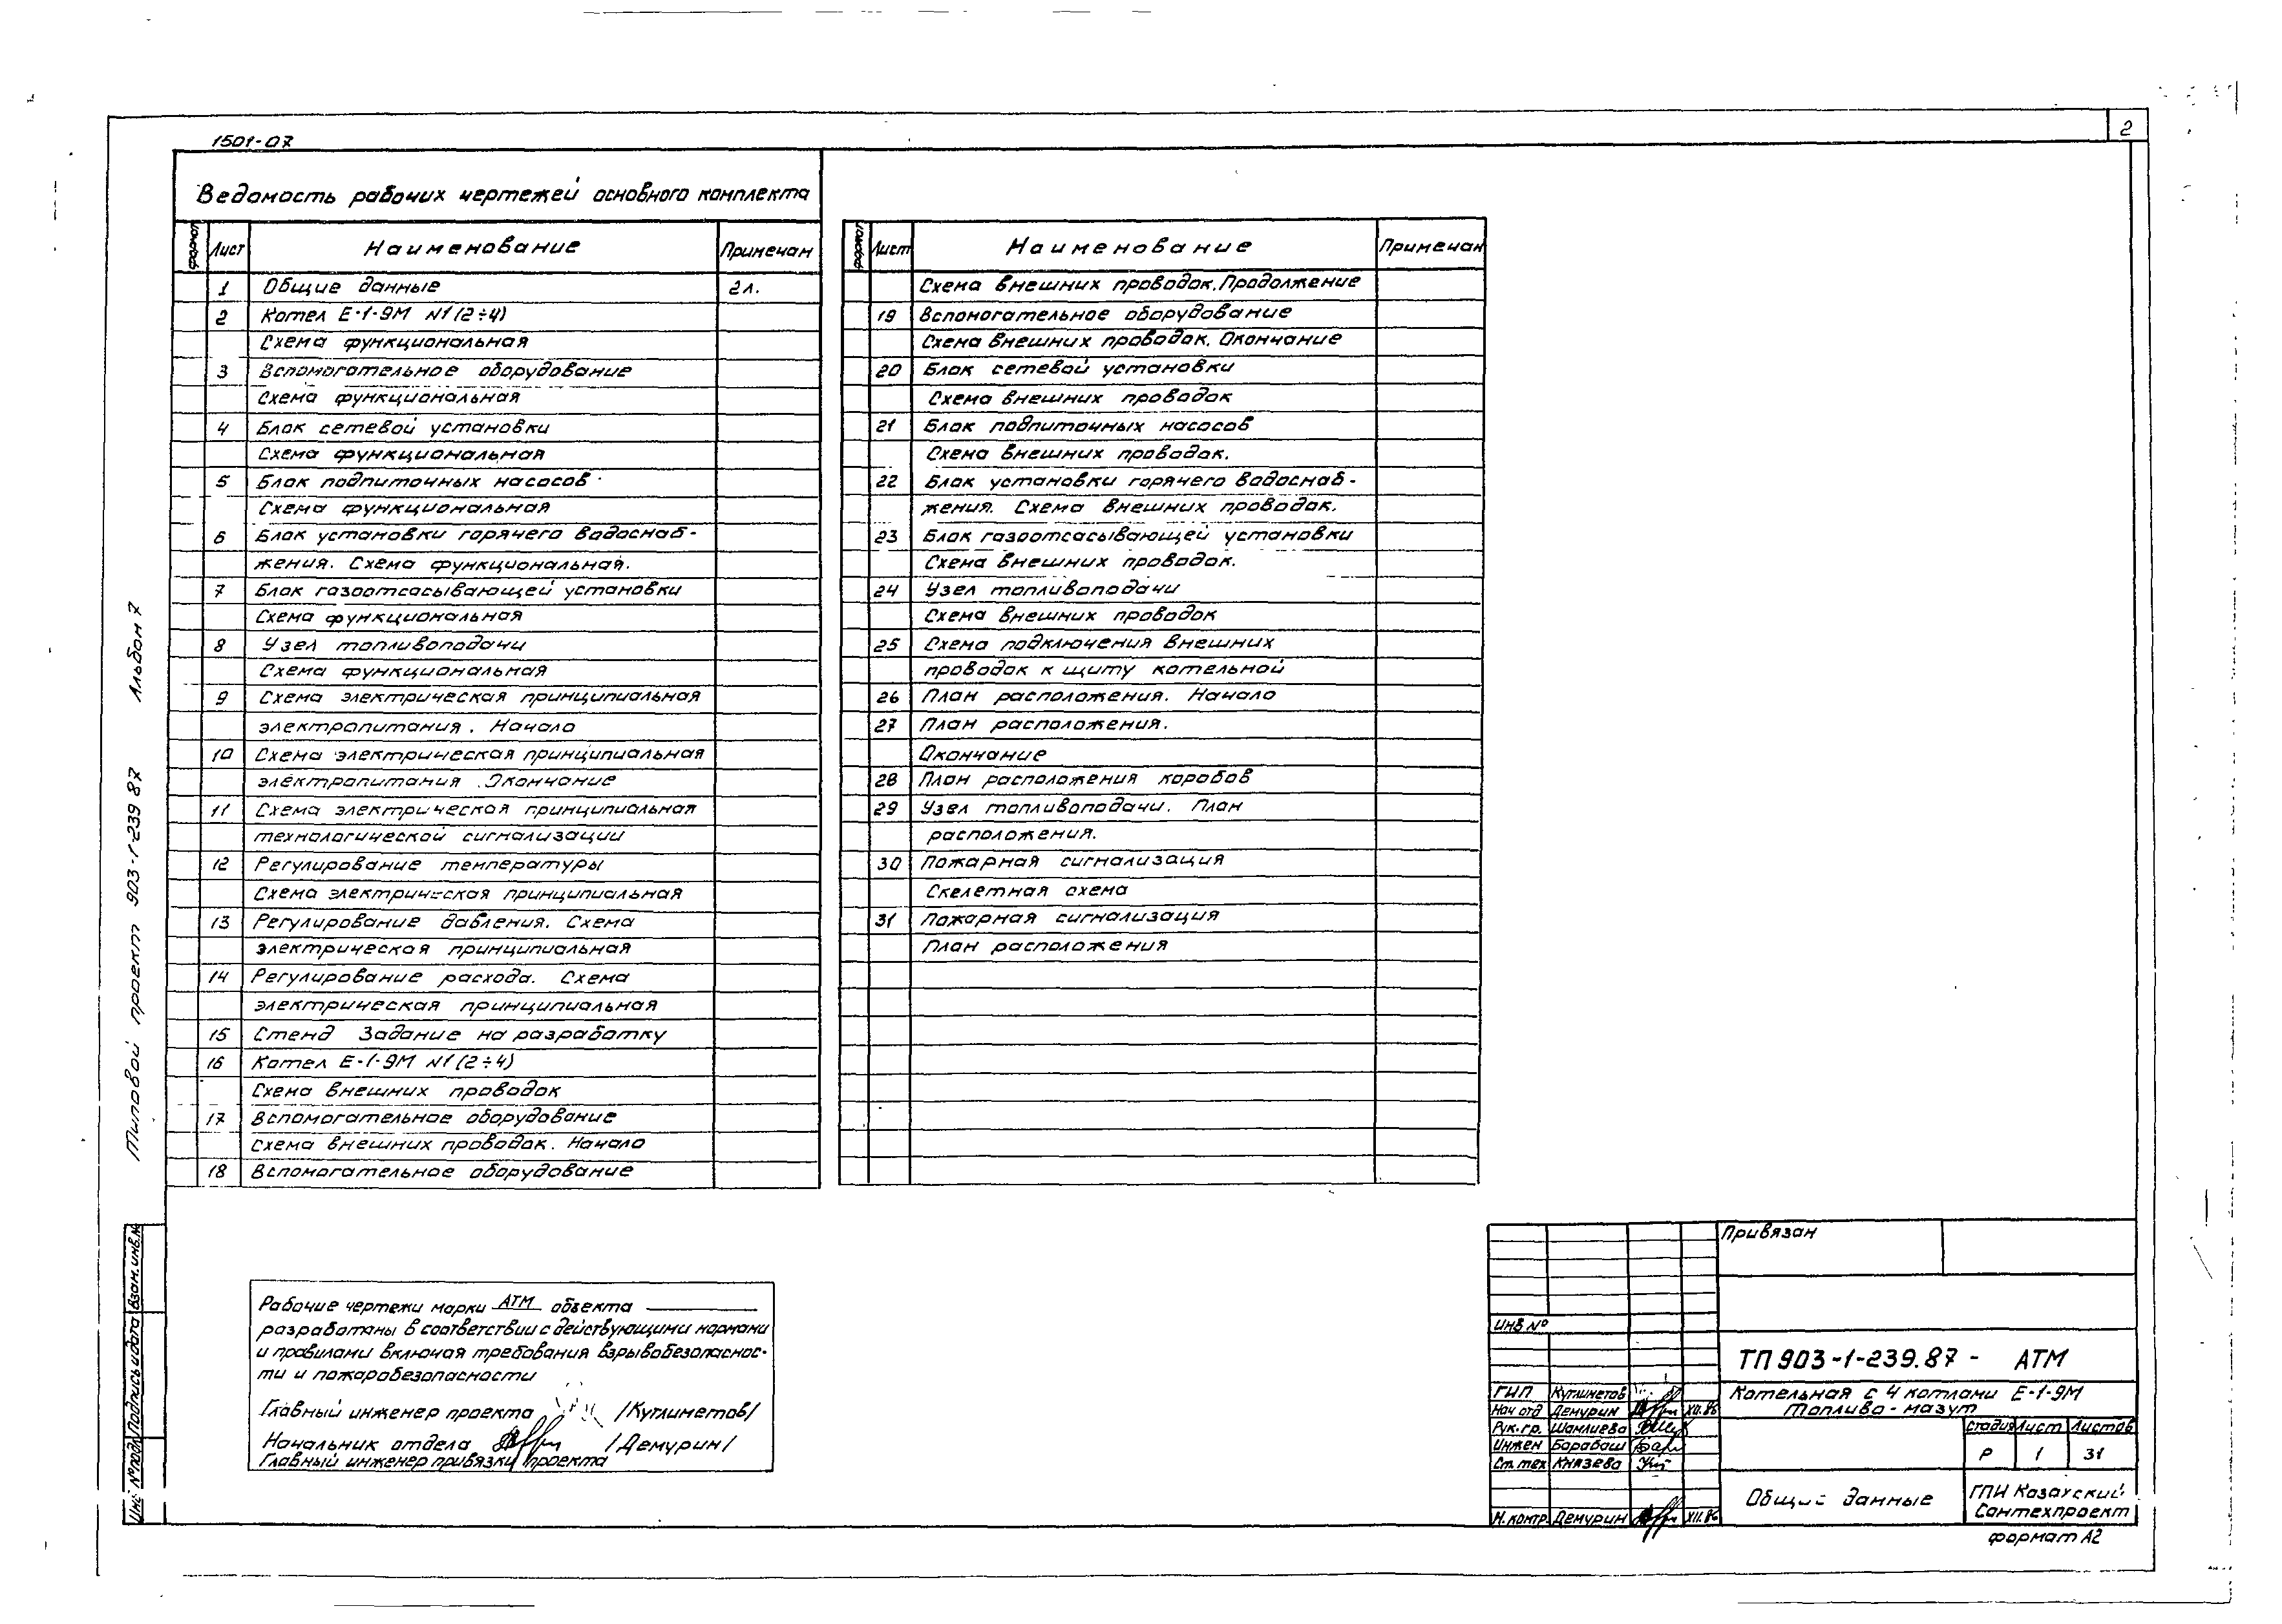 2
1501-07
Ведомость рабочих чертежей основного комплекта
формат Лист Наименование Примечан
1 Общие данные 2л.
2 Котел Е-1-9М N1(2÷4)
Схема функциональная
3 Вспомогательное оборудование
Схема функциональная
4 Блок сетевой установки
Схема функциональная
5 Блок подпиточных насосов
Схема функциональная
6 Блок установки горячего водоснаб-
жения. Схема функциональная.
7 Блок газоотсасывающей установки
Схема функциональная
8 Узел топливоподачи
Схема функциональная
9 Схема электрическая принципиальная
электропитания. Начало
10 Схема электрическая принципиальная
электропитания. Окончание
11 Схема электрическая принципиальная
технологической сигнализации
12 Регулирование температуры
Схема электрическая принципиальная
13 Регулирование давления. Схема
электрическая принципиальная
14 Регулирование расхода. Схема
электрическая принципиальная
15 Стенд Задание на разработку
16 Котел Е-1-9М N1(2÷4)
Схема внешних проводок
17 Вспомогательное оборудование
Схема внешних проводок. Начало
18 Вспомогательное оборудование
формат Лист Наименование Примечан
Схема внешних проводок. Продолжение
19 Вспомогательное оборудование
Схема внешних проводок. Окончание
20 Блок сетевой установки
Схема внешних проводок
21 Блок подпиточных насосов
Схема внешних проводок.
22 Блок установки горячего водоснаб-
жения. Схема внешних проводок.
23 Блок газоотсасывающей установки
Схема внешних проводок.
24 Узел топливоподачи
Схема внешних проводок
25 Схема подключения внешних
проводок к щиту котельной
26 План расположения. Начало
27 План расположения.
Окончание
28 План расположения коробов
29 Узел топливоподачи. План
расположения.
30 Пожарная сигнализация
Скелетная схема
31 Пожарная сигнализация
План расположения
Типовой проект 903-1-239 87 Альбом 7
Инв №подл Подпись и дата Взам.инв.№
Рабочие чертежи марки АТМ объекта
разработаны в соответствии с действующими нормами
и правилами включая требования взрывобезопаснос-
ти и пожаробезопасности
Главный инженер проекта /Кутлиметов/
Начальник отдела /Демурин/
Главный инженер привязки проекта
Привязан
ИНВ №
ТП 903-1-239.87 - АТМ
Котельная с 4 котлами Е-1-9М
Топливо-мазут
ГИП Кутлиметов
Нач отд Демурин XII.86
Рук.гр. Шамлиева
Инжен Барабаш
Ст.тех Князева
Н.контр. Демурин XII.86
стадия Лист Листов
Р 1 31
Общие данные
ГПИ Казахский
Сантехпроект
формат А2